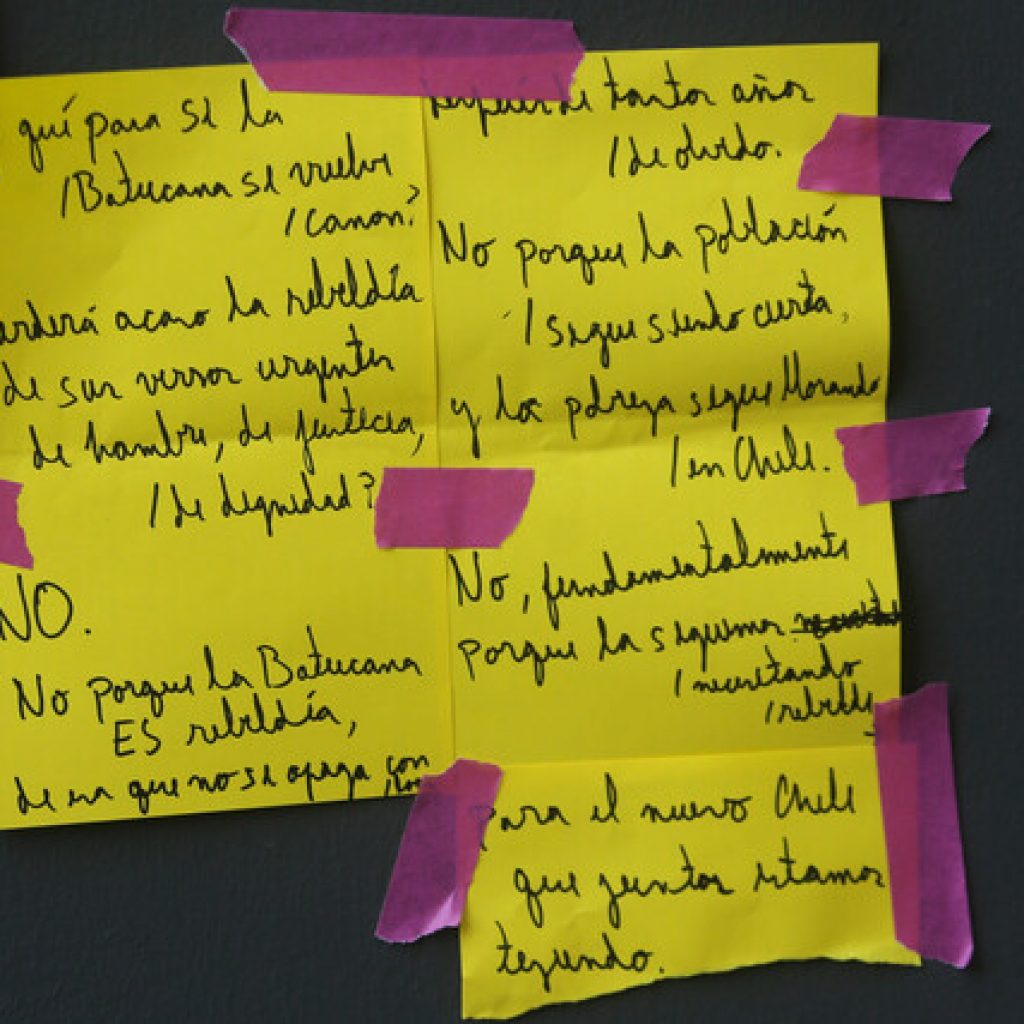 qué pasa si la
/Batucana se vuelve
/canon?
erderá acaso la rebeldía
de sus versos urgentes
de hambre, de justicia,
/de dignidad?
NO.
No porque la Batucana
ES rebeldía,
de esa que no se apaga con
después de tantos años
/de olvido.
No porque la población
/sigue siendo cierta,
y los pobreza sigue llorando
/en Chile.
No, fundamentalmente
porque la seguimos
/necesitando
/rebelde
para el nuevo Chile
que juntos estamos
tejiendo.